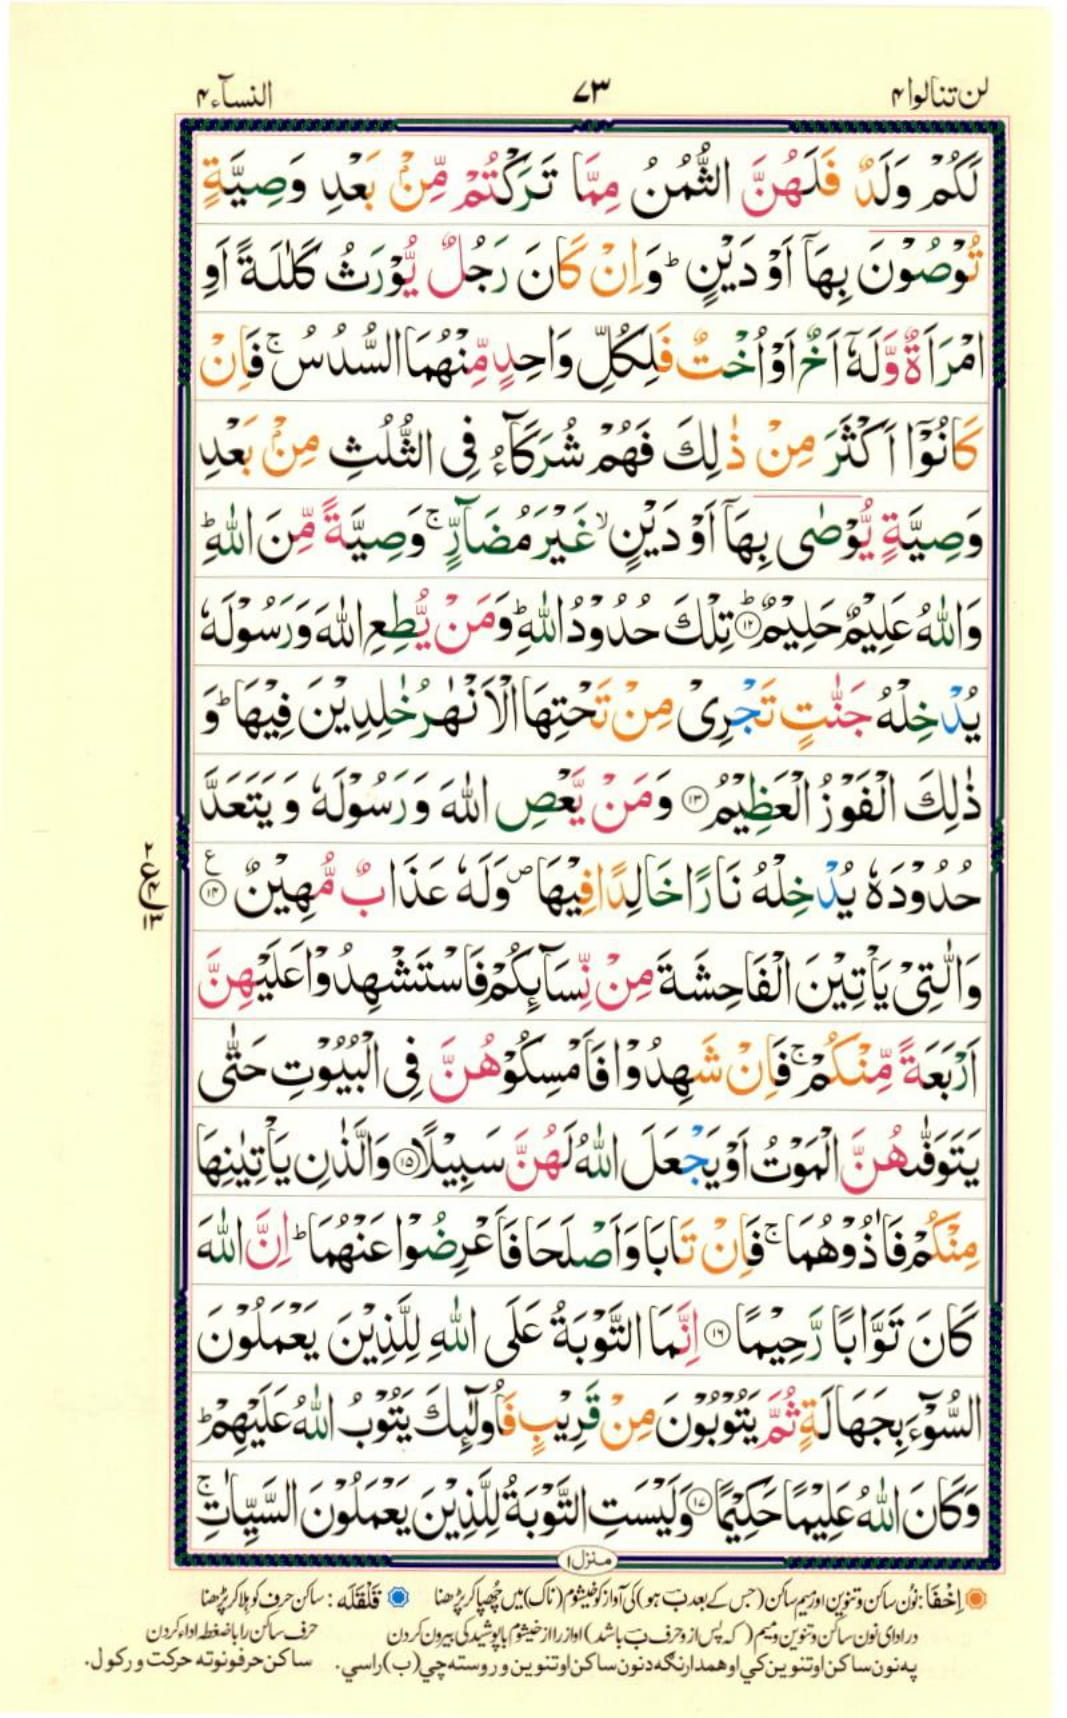 لن تنالوا ۴
۷۳
النسآء ۴
لَكُمْ وَلَدٌ فَلَهُنَّ الثُّمُنُ مِمَّا تَرَكْتُمْ مِّنْۢ بَعْدِ وَصِيَّةٍ
تُوْصُوْنَ بِهَاۤ اَوْ دَيْنٍ ؕ وَاِنْ كَانَ رَجُلٌ يُّوْرَثُ كَلٰلَةً اَوِ
امْرَاَةٌ وَّلَهٗۤ اَخٌ اَوْ اُخْتٌ فَلِكُلِّ وَاحِدٍ مِّنْهُمَا السُّدُسُ ۚ فَاِنْ
كَانُوْۤا اَكْثَرَ مِنْ ذٰلِكَ فَهُمْ شُرَكَآءُ فِى الثُّلُثِ مِنْۢ بَعْدِ
وَصِيَّةٍ يُّوْصٰى بِهَاۤ اَوْ دَيْنٍ ۙ غَيْرَ مُضَآرٍّ ۚ وَصِيَّةً مِّنَ اللّٰهِ ؕ
وَاللّٰهُ عَلِيْمٌ حَلِيْمٌ ؕ ﴿۱۲﴾ تِلْكَ حُدُوْدُ اللّٰهِ ؕ وَمَنْ يُّطِعِ اللّٰهَ وَرَسُوْلَهٗ
يُدْخِلْهُ جَنّٰتٍ تَجْرِىْ مِنْ تَحْتِهَا الْاَنْهٰرُ خٰلِدِيْنَ فِيْهَا ؕ وَ
ذٰلِكَ الْفَوْزُ الْعَظِيْمُ ﴿۱۳﴾ وَمَنْ يَّعْصِ اللّٰهَ وَرَسُوْلَهٗ وَيَتَعَدَّ
حُدُوْدَهٗ يُدْخِلْهُ نَارًا خَالِدًا فِيْهَا ۪ وَلَهٗ عَذَابٌ مُّهِيْنٌ ﴿۱۴﴾ ع
۲
ع ۴
۱۳
وَالّٰتِىْ يَاْتِيْنَ الْفَاحِشَةَ مِنْ نِّسَآئِكُمْ فَاسْتَشْهِدُوْا عَلَيْهِنَّ
اَرْبَعَةً مِّنْكُمْ ۚ فَاِنْ شَهِدُوْا فَاَمْسِكُوْهُنَّ فِى الْبُيُوْتِ حَتّٰى
يَتَوَفّٰىهُنَّ الْمَوْتُ اَوْ يَجْعَلَ اللّٰهُ لَهُنَّ سَبِيْلًا ﴿۱۵﴾ وَالَّذٰنِ يَاْتِيٰنِهَا
مِنْكُمْ فَاٰذُوْهُمَا ۚ فَاِنْ تَابَا وَاَصْلَحَا فَاَعْرِضُوْا عَنْهُمَا ؕ اِنَّ اللّٰهَ
كَانَ تَوَّابًا رَّحِيْمًا ﴿۱۶﴾ اِنَّمَا التَّوْبَةُ عَلَى اللّٰهِ لِلَّذِيْنَ يَعْمَلُوْنَ
السُّوْٓءَ بِجَهَالَةٍ ثُمَّ يَتُوْبُوْنَ مِنْ قَرِيْبٍ فَاُولٰٓئِكَ يَتُوْبُ اللّٰهُ عَلَيْهِمْ ؕ
وَكَانَ اللّٰهُ عَلِيْمًا حَكِيْمًا ﴿۱۷﴾ وَلَيْسَتِ التَّوْبَةُ لِلَّذِيْنَ يَعْمَلُوْنَ السَّيِّاٰتِ ۚ
منزل ۱
اِخْفَا : نُون ساکن و تنوین اور میم ساکن (جس کے بعد بَ ہو) کی آواز کو خیشوم (ناک) میں چُھپا کر پڑھنا قَلْقَلَه : ساکن حرف کو ہلا کر پڑھنا
در ادای نون ساکن و تنوین و میم (که پس از و حرف بَ باشد) اواز را از خیشوم با پوشیدگی بیرون کردن حرف ساکن را با ضغطه اداء کردن
په نون ساکن او تنوین کي او همدارنګه د نون ساکن او تنوین و روسته چي (ب) راسي. ساکن حرفو نو ته حرکت ورکول.